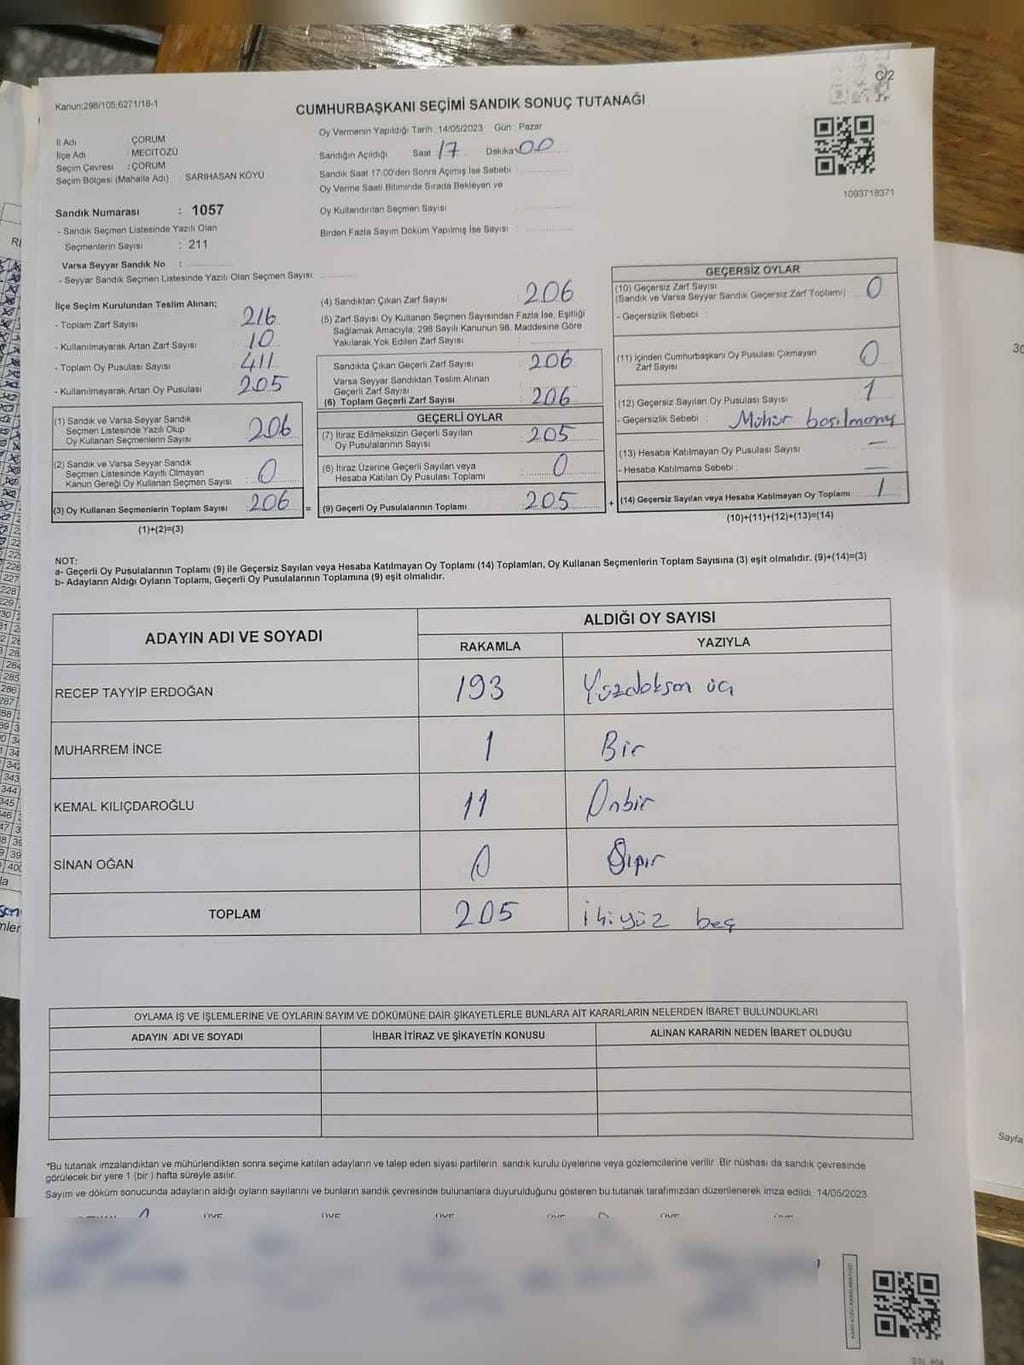 C/2
Kanun:298/105,6271/18-1
CUMHURBAŞKANI SEÇİMİ SANDIK SONUÇ TUTANAĞI
İl Adı : ÇORUM
İlçe Adı : MECİTÖZÜ
Seçim Çevresi : ÇORUM
Seçim Bölgesi (Mahalle Adı) : SARIHASAN KÖYÜ
Sandık Numarası : 1057
- Sandık Seçmen Listesinde Yazılı Olan
Seçmenlerin Sayısı : 211
Varsa Seyyar Sandık No :
- Seyyar Sandık Seçmen Listesinde Yazılı Olan Seçmen Sayısı
Oy Vermenin Yapıldığı Tarih :14/05/2023 Gün : Pazar
Sandığın Açıldığı Saat : 17 Dakika: 00
Sandık Saat 17.00'den Sonra Açımış İse Sebebi :
Oy Verme Saati Bitiminde Sırada Bekleyen ve
Oy Kullandırılan Seçmen Sayısı :
Birden Fazla Sayım Döküm Yapılmış İse Sayısı :
1093718371
İlçe Seçim Kurulundan Teslim Alınan;
- Toplam Zarf Sayısı : 216
- Kullanılmayarak Artan Zarf Sayısı : 10
- Toplam Oy Pusulası Sayısı : 411
- Kullanılmayarak Artan Oy Pusulası : 205
(1) Sandık ve Varsa Seyyar Sandık
Seçmen Listesinde Yazılı Olup
Oy Kullanan Seçmenlerin Sayısı : 206
(2) Sandık ve Varsa Seyyar Sandık
Seçmen Listesinde Kayıtlı Olmayan
Kanun Gereği Oy Kullanan Seçmen Sayısı : 0
(3) Oy Kullanan Seçmenlerin Toplam Sayısı : 206 =
(1)+(2)=(3)
(4) Sandıktan Çıkan Zarf Sayısı : 206
(5) Zarf Sayısı Oy Kullanan Seçmen Sayısından Fazla İse, Eşitliği
Sağlamak Amacıyla; 298 Sayılı Kanunun 98. Maddesine Göre
Yakılarak Yok Edilen Zarf Sayısı :
Sandıkta Çıkan Geçerli Zarf Sayısı : 206
Varsa Seyyar Sandıktan Teslim Alınan
Geçerli Zarf Sayısı
(6) Toplam Geçerli Zarf Sayısı : 206
GEÇERLİ OYLAR
(7) İtiraz Edilmeksizin Geçerli Sayılan
Oy Pusulalarının Sayısı : 205
(8) İtiraz Üzerine Geçerli Sayılan veya
Hesaba Katılan Oy Pusulası Toplamı : 0
(9) Geçerli Oy Pusulalarının Toplamı : 205 +
GEÇERSİZ OYLAR
(10) Geçersiz Zarf Sayısı : 0
(Sandık ve Varsa Seyyar Sandık Geçersiz Zarf Toplamı)
- Geçersizlik Sebebi :
(11) İçinden Cumhurbaşkanı Oy Pusulası Çıkmayan
Zarf Sayısı : 0
(12) Geçersiz Sayılan Oy Pusulası Sayısı : 1
- Geçersizlik Sebebi : Mühür basılmamış
(13) Hesaba Katılmayan Oy Pusulası Sayısı : —
- Hesaba Katılmama Sebebi : —
(14) Geçersiz Sayılan veya Hesaba Katılmayan Oy Toplamı : 1
(10)+(11)+(12)+(13)=(14)
NOT:
a- Geçerli Oy Pusulalarının Toplamı (9) ile Geçersiz Sayılan veya Hesaba Katılmayan Oy Toplamı (14) Toplamları, Oy Kullanan Seçmenlerin Toplam Sayısına (3) eşit olmalıdır. (9)+(14)=(3)
b- Adayların Aldığı Oyların Toplamı, Geçerli Oy Pusulalarının Toplamına (9) eşit olmalıdır.
ADAYIN ADI VE SOYADI
ALDIĞI OY SAYISI
RAKAMLA YAZIYLA
RECEP TAYYİP ERDOĞAN 193 Yüzdoksan üç
MUHARREM İNCE 1 Bir
KEMAL KILIÇDAROĞLU 11 Onbir
SİNAN OĞAN 0 Sıfır
TOPLAM 205 İkiyüz beş
OYLAMA İŞ VE İŞLEMLERİNE VE OYLARIN SAYIM VE DÖKÜMÜNE DAİR ŞİKAYETLERLE BUNLARA AİT KARARLARIN NELERDEN İBARET BULUNDUKLARI
ADAYIN ADI VE SOYADI İHBAR İTİRAZ VE ŞİKAYETİN KONUSU ALINAN KARARIN NEDEN İBARET OLDUĞU
*Bu tutanak imzalandıktan ve mühürlendikten sonra seçime katılan adayların ve talep eden siyasi partilerin sandık kurulu üyelerine veya gözlemcilerine verilir. Bir nüshası da sandık çevresinde
görülecek bir yere 1 (bir) hafta süreyle asılır.
Sayım ve döküm sonucunda adayların aldığı oyların sayılarını ve bunların sandık çevresinde bulunanlara duyurulduğunu gösteren bu tutanak tarafımızdan düzenlenerek imza edildi. 14/05/2023
ÜYE ÜYE ÜYE ÜYE ÜYE
Sayfa